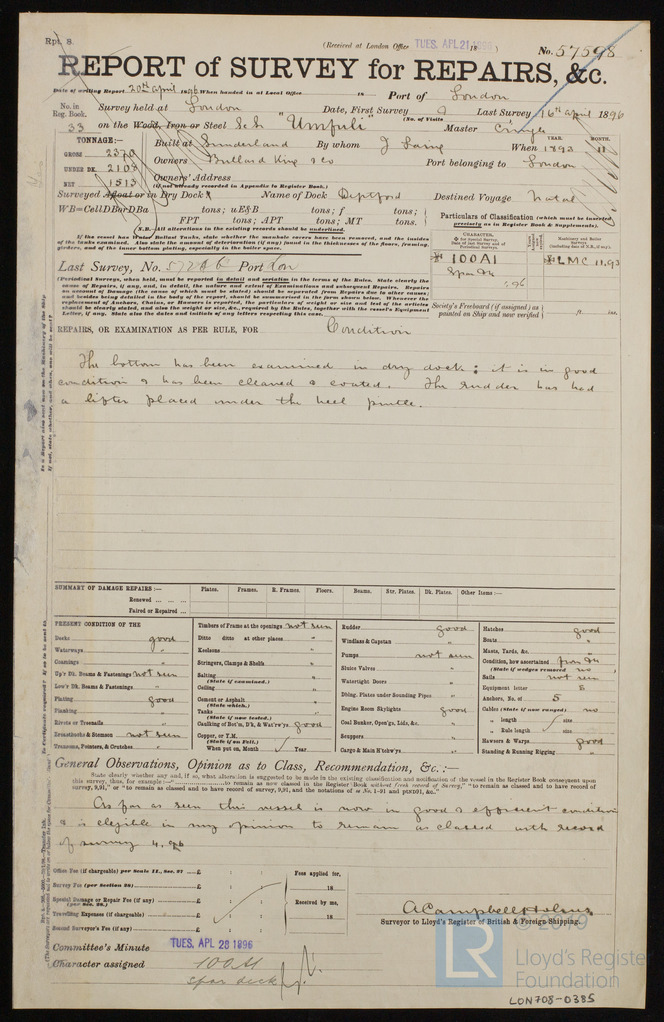 Rpt. 8.
(Received at London Office TUES. APL. 21 1896 18 )
No. 57598
REPORT of SURVEY for REPAIRS, &c.
Date of writing Report 20th April 1896 When handed in at Local Office 18 Port of London
No. in Reg. Book. Survey held at London Date, First Survey 9 Last Survey 16th April 1896
(No. of Visits
33 on the Wood, Iron or Steel S.S. "Umfuli" Master
TONNAGE:—
GROSS 2370
UNDER DK. 2104
NET 1513
Built at Sunderland By whom J Laing When 1893 11
YEAR. MONTH.
Owners Bullard King & Co Port belonging to London
Owners' Address
(If not already recorded in Appendix to Register Book.)
Surveyed Afloat or in Dry Dock Name of Dock Deptford Destined Voyage Natal
WB=CellDBorDBa tons; uE&B tons; f tons;
FPT tons; APT tons; MT tons.
(N.B.—All alterations in the existing records should be underlined.
If the vessel has Water Ballast Tanks, state whether the manhole covers have been removed, and the insides
of the tanks examined. Also state the amount of deterioration (if any) found in the thicknesses of the floors, framing
girders, and of the inner bottom plating, especially in the boiler space.
Particulars of Classification (which must be inserted
precisely as in Register Book & Supplements).
CHARACTER.
100A1
Spar Dk
LMC 11,93
Last Survey, No. Port Lon
(Periodical Surveys, when held, must be reported in detail and seriatim in the terms of the Rules. State clearly the
cause of Repairs, if any, and, in detail, the nature and extent of Examinations and subsequent Repairs. Repairs
on account of Damage (the cause of which must be stated) should be separated from Repairs due to other causes;
and besides being detailed in the body of the report, should be summarised in the form shown below. Whenever the
replacement of Anchors, Chains, or Hawsers is reported, the particulars of weight or size and test of the articles
should be clearly stated, and also the weight or size, &c., required by the Rules, together with the vessel's Equipment
Letter, if any. State also the dates and initials of any letters respecting this case.
Society's Freeboard (if assigned) as
painted on Ship and now verified ft. ins.
REPAIRS, OR EXAMINATION AS PER RULE, FOR Condition
The bottom has been examined in dry dock: it is in good
condition & has been cleaned & coated. The rudder has had
a lifter placed under the heel pintle.
SUMMARY OF DAMAGE REPAIRS:— Plates. Frames. R. Frames. Floors. Beams. Str. Plates. Dk. Plates. Other Items:—
Renewed ... ... ...
Faired or Repaired ...
PRESENT CONDITION OF THE
Decks good
Waterways "
Coamings "
Up'r Dk. Beams & Fastenings not seen
Low'r Dk. Beams & Fastenings "
Plating good
Planking
Rivets or Treenails "
Breasthooks & Stemson not seen
Transoms, Pointers, & Crutches "
Timbers of Frame at the openings not seen
Ditto ditto at other places "
Keelsons "
Stringers, Clamps & Shelfs "
Salting
(State if examined.)
Ceiling "
Cement or Asphalt
(State which.)
Tanks
(State if now tested.)
Caulking of Bot'm, D'k, & Wat'rw'ys good
Copper, or Y.M.
(State if on Felt.)
When put on, Month Year
Rudder good
Windlass & Capstan "
Pumps not seen
Sluice Valves "
Watertight Doors "
Dblng. Plates under Sounding Pipes "
Engine Room Skylights good
Coal Bunker, Open'gs, Lids, &c. "
Scuppers "
Cargo & Main H'tchw'ys "
Hatches good
Boats "
Masts, Yards, &c. "
Condition, how ascertained from Dk
(State if wedges removed no
Sails not seen
Equipment letter S
Anchors, No. of 5
Cables (State if now ranged) no
" length size
" Rule length size
Hawsers & Warps good
Standing & Running Rigging "
General Observations, Opinion as to Class, Recommendation, &c.:—
State clearly whether any, and if so, what alteration is suggested to be made in the existing classification and notification of the vessel in the Register Book consequent upon
As far as seen this vessel is now in good & efficient condition
& is eligible in my opinion to remain as classed with record
of survey 4,96
Office Fee (if chargeable) per Scale II., Sec. 27 £ : :
Survey Fee (per Section 28) £ : :
Special Damage or Repair Fee (if any)
(per Sec. 28.) £ : :
Travelling Expenses (if chargeable) £ : :
Second Surveyor's Fee (if any) £ : :
Fees applied for,
18
Received by me,
18
A Campbell Holms
Surveyor to Lloyd's Register of British & Foreign Shipping.
Committee's Minute TUES. APL 28 1896
Character assigned 100A1
spar deck
© 2019
LR
Lloyd's Register
Foundation
LON708-0385